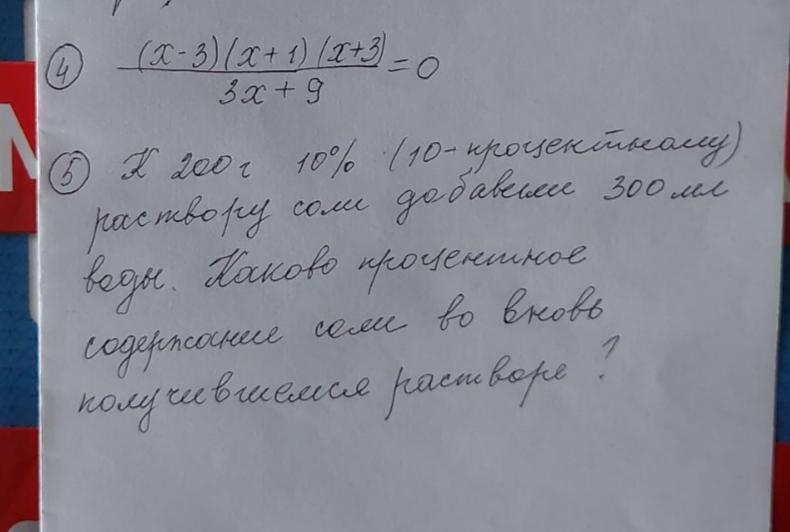 ④ (x-3)(x+1)(x+3)
3x+9
=0
⑤ К 200 г 10% (10-процентному)
раствору соли добавили 300 мл
воды. Каково процентное
содержание соли во вновь
получившемся растворе?